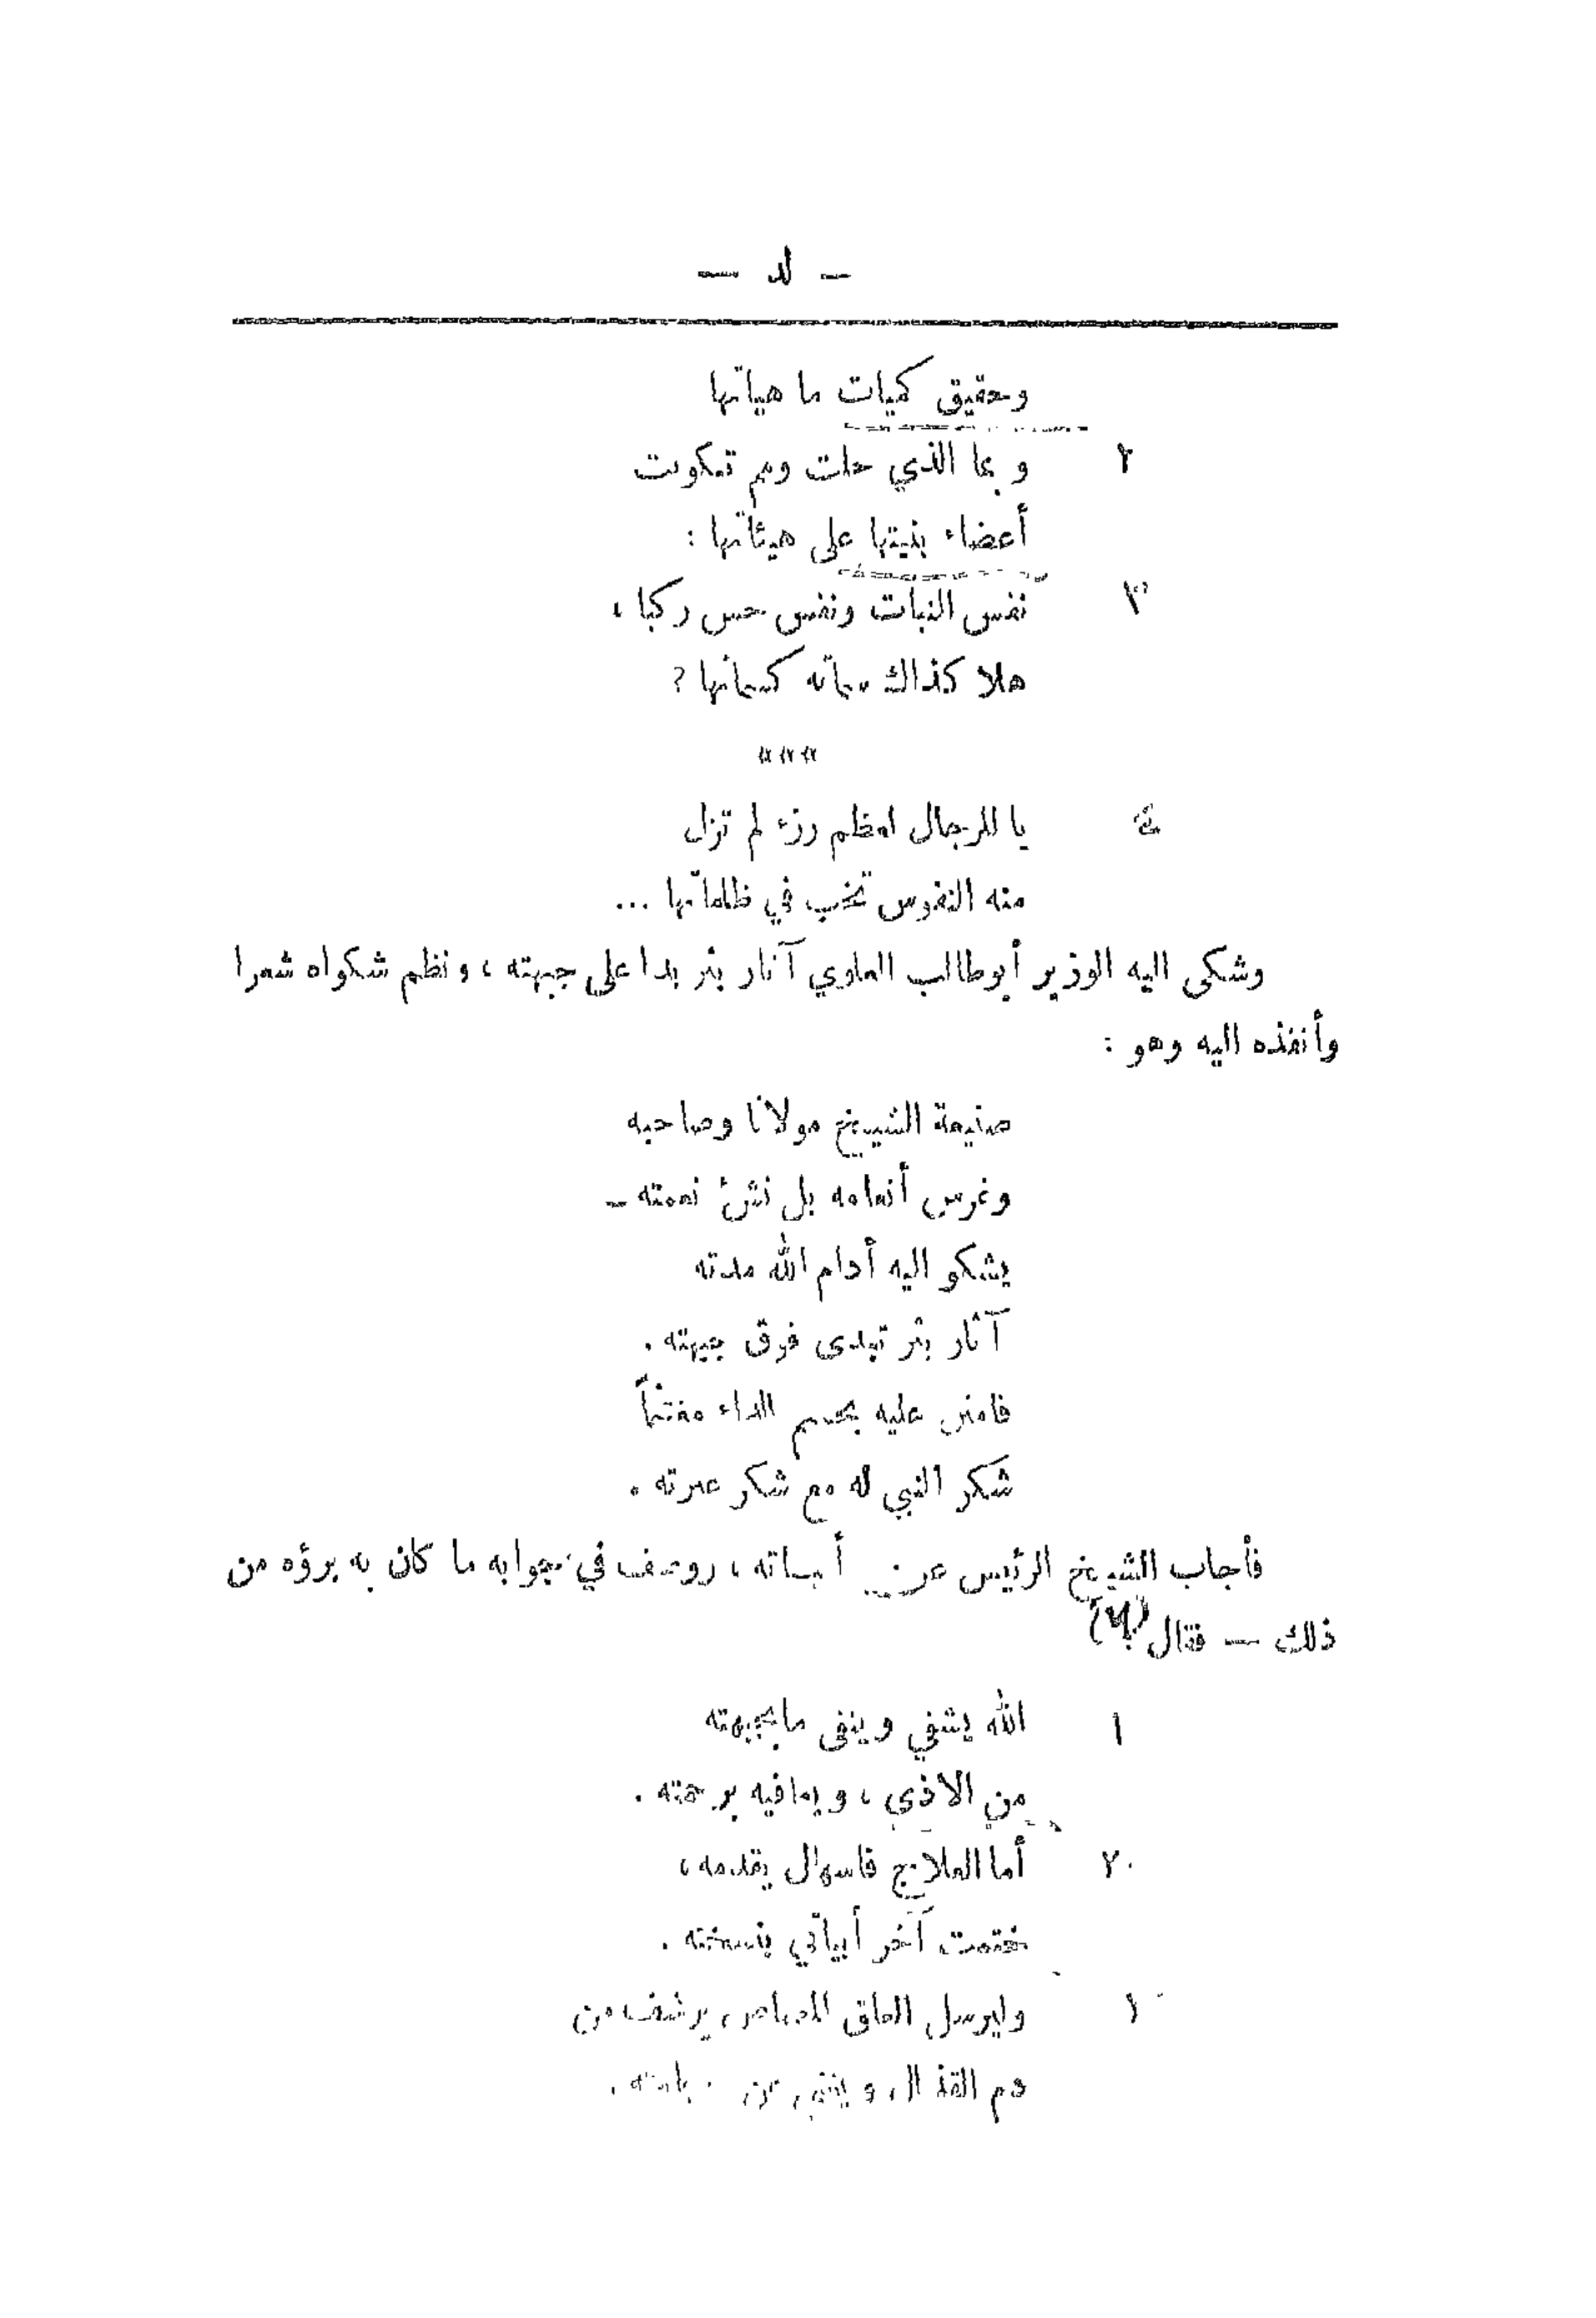 — لد —
وحقيق كميات ماهياتها
٢ وبما الذي حلت ومم تكونت
أعضاء بنيتها على هيئاتها :
٣ نفس النبات ونفس حس ركبا ،
هلا كذاك سماته كسماتها ?
***
٤ يا للرجال لعظم رزء لم تزل
منه النفوس تخب في ظلماتها ...
وشكى اليه الوزير أبوطالب العلوي آثار بثر بدا على جبهته ، ونظم شكواه شعرا
وأنفذه اليه وهو :
صنيعة الشيخ مولانا وصاحبه
وغرس أنعامه بل نشئ نعمته —
يشكو اليه أدام الله مدته
آثار بثر تبدى فوق جبهته .
فامنن عليه بحسم الداء مغتنماً
شكر النبي له مع شكر عترته .
فأجاب الشيخ الرئيس عن أبياته ، ووصف في جوابه ما كان به برؤه من
ذلك — فقال
١ الله يشفي وينفى مابجبهته
من الاذى ، ويعافيه برحمته .
٢ أما العلاج فاسهال يقدمه ،
ختمت آخر أبياتي بنسخته .
وليرسل العلق المصاص ، يرشف من
دم القذال ، ويغني عن